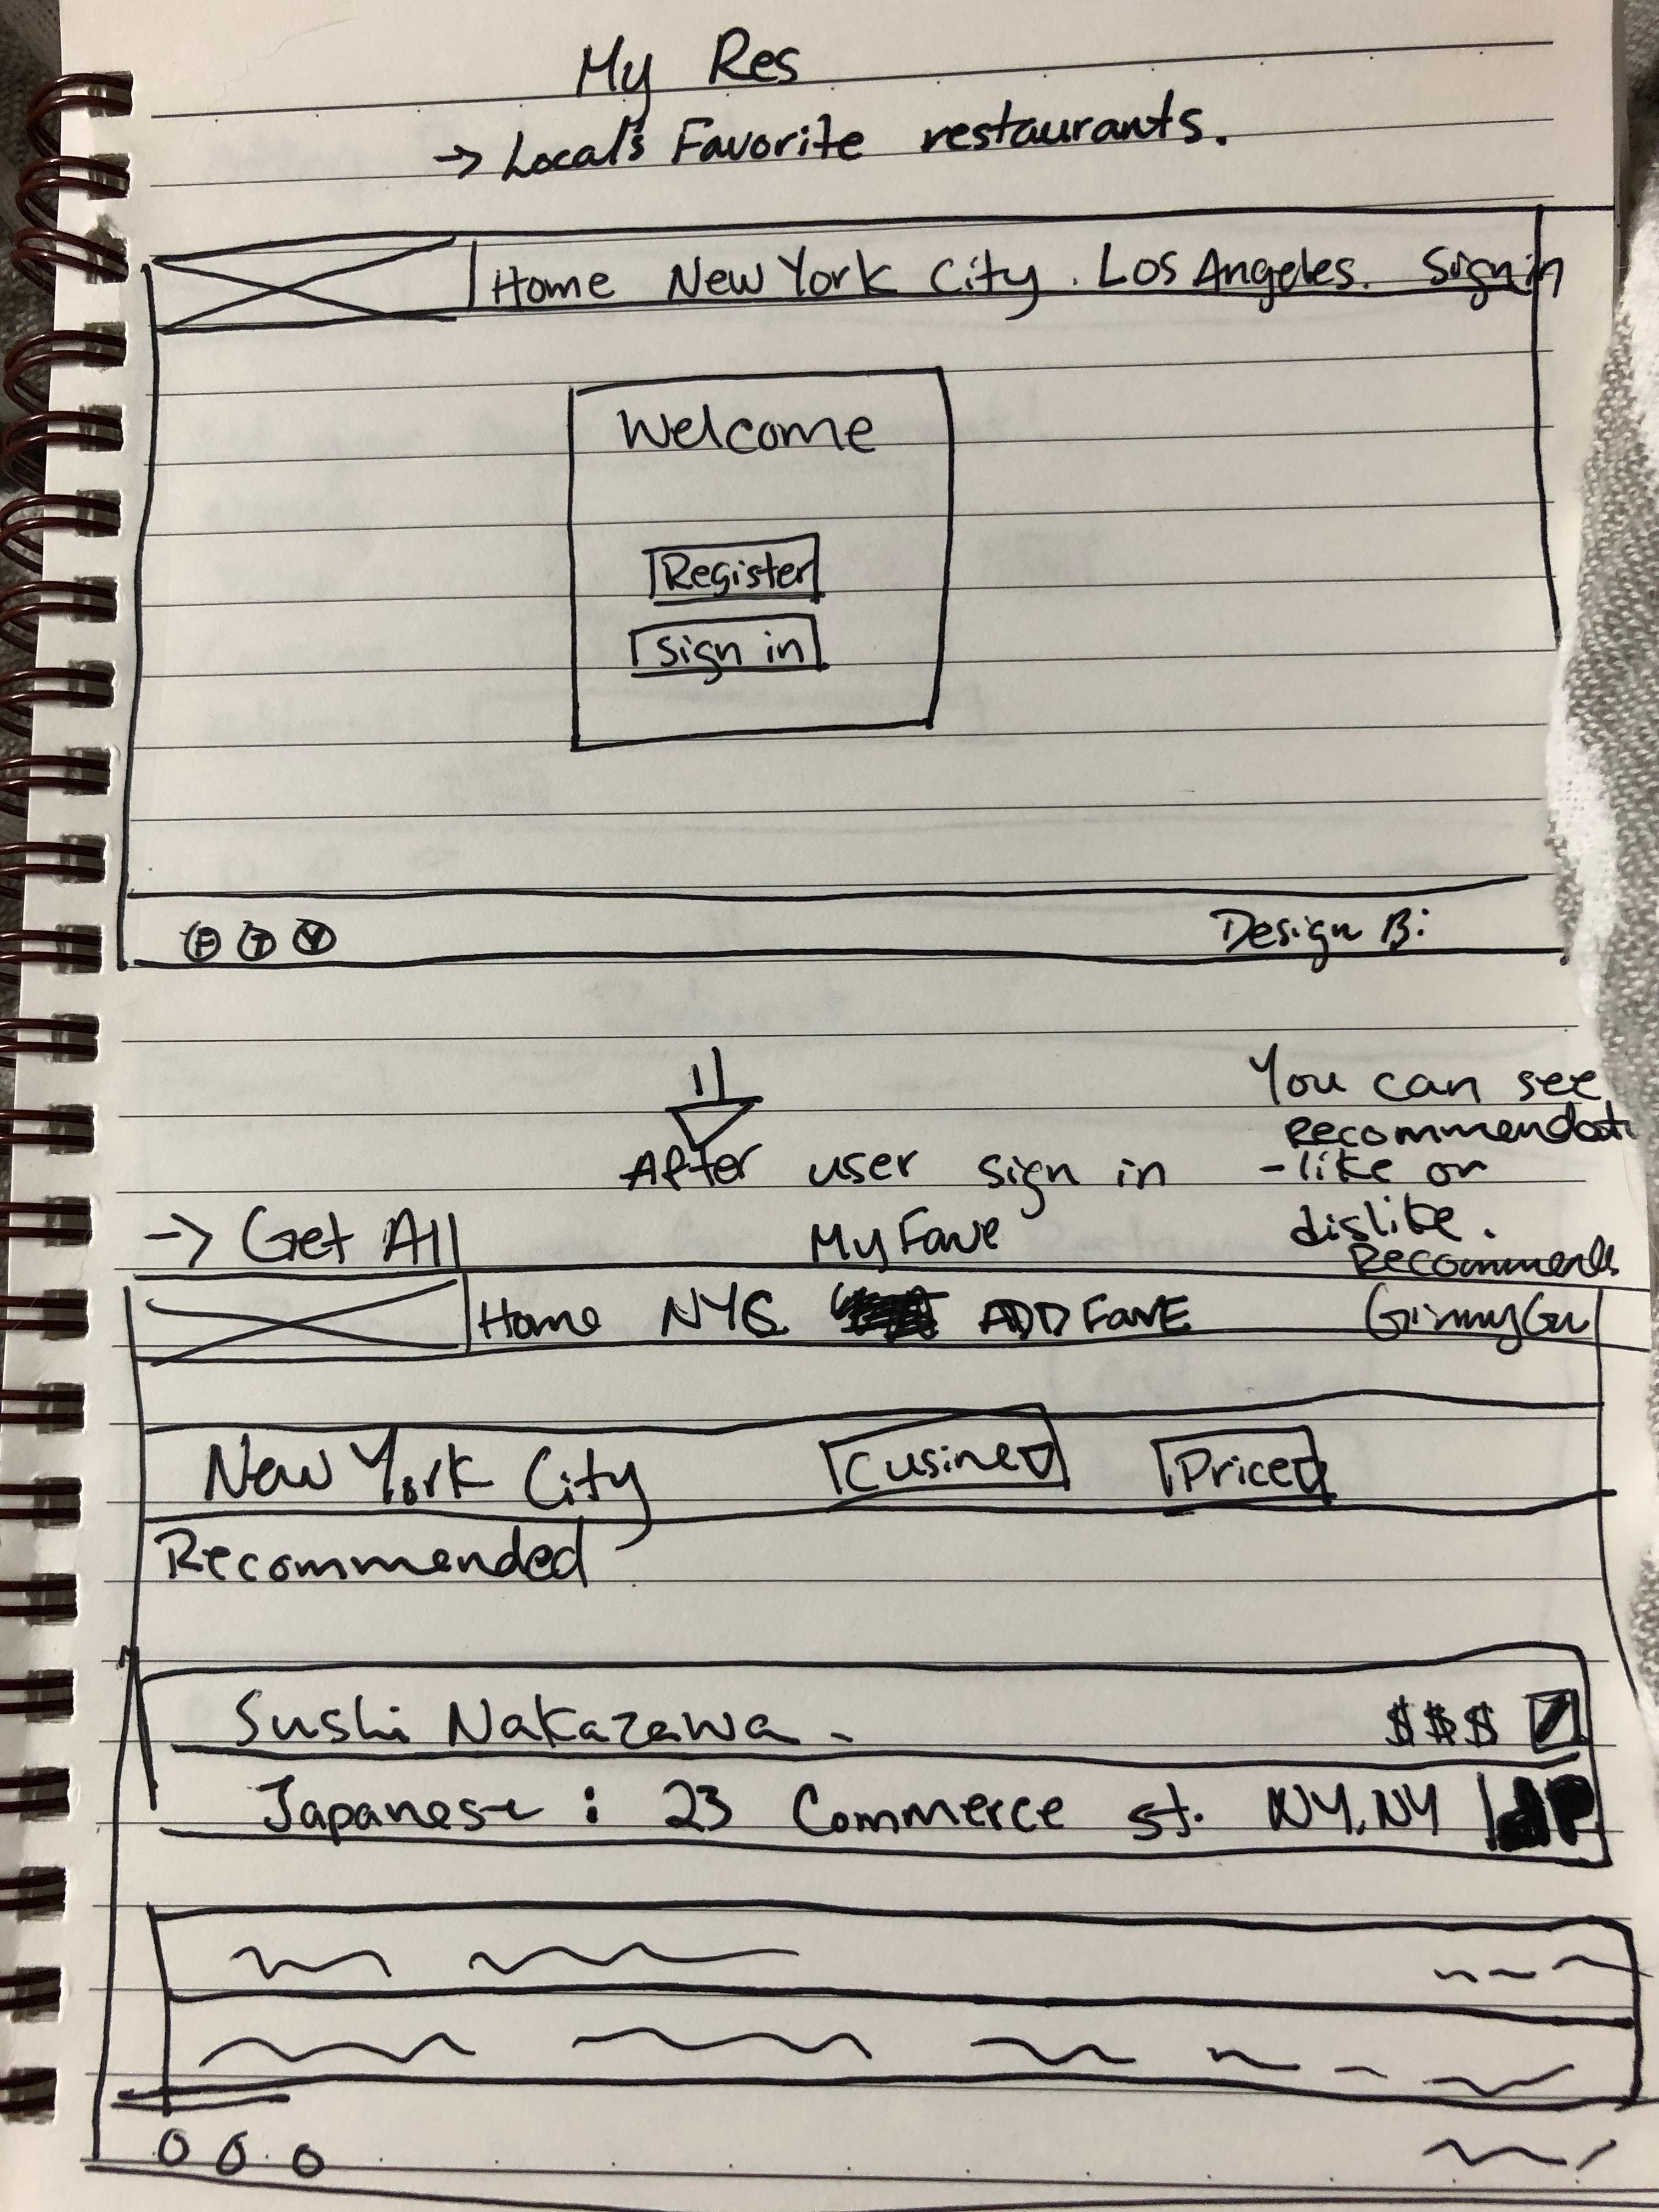 My Res
→ Local's Favorite restaurants.
Home New York City . Los Angeles. Sign in
Welcome
Register
Sign in
F T Y
Design B:
After user sign in
You can see
recommendati
- like or
dislike.
→ Get All
My Fave
Recommends
Home NYC ADD FAVE GinnyGu
New York City Cusine Price
Recommended
Sushi Nakazawa - $$$
Japanese : 23 Commerce st. NY, NY